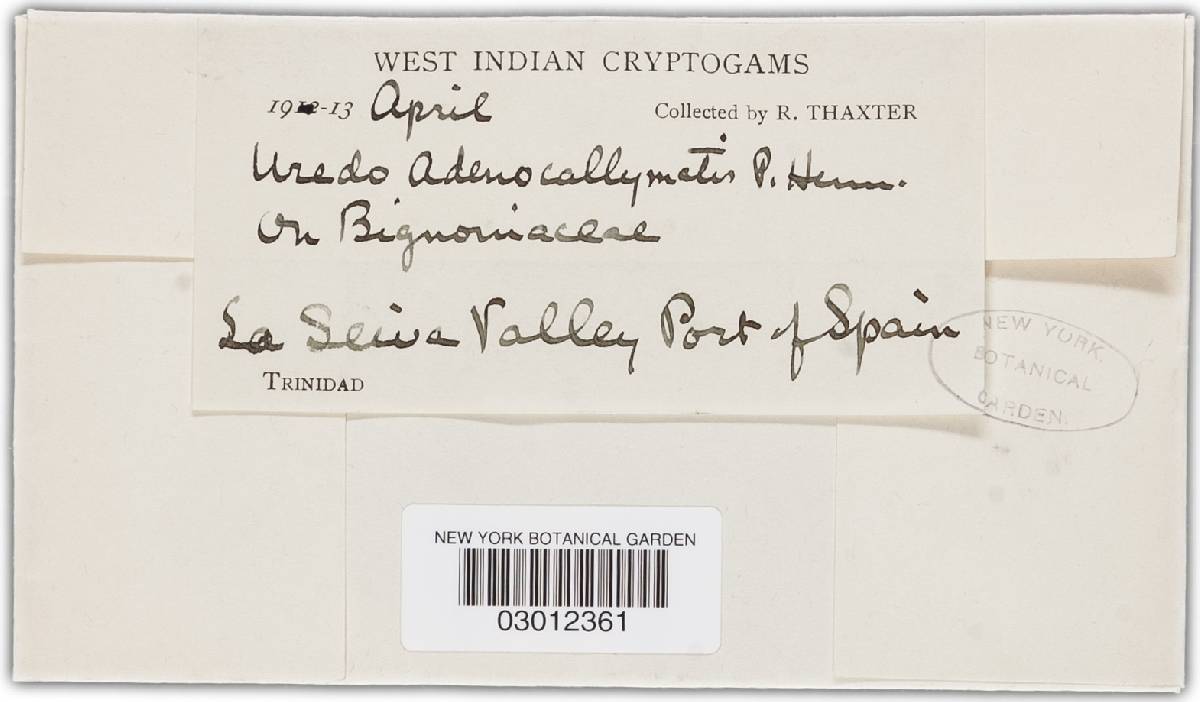 WEST INDIAN CRYPTOGAMS
1912-13 April Collected by R. THAXTER
Uredo Adenocallymatis P. Henn.
On Bignoniaceae
La Seiva Valley Port of Spain
TRINIDAD
NEW YORK
BOTANICAL
GARDEN.
NEW YORK BOTANICAL GARDEN
03012361